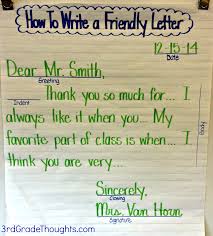 How To Write a Friendly Letter
12-15-14
Date
Dear Mr. Smith,
Greeting
Indent
Thank you so much for... I
always like it when you... My
favorite part of class is when... I
think you are very....
Body
Sincerely,
Closing
Mrs. Van Horn
Signature
3rdGradeThoughts.com